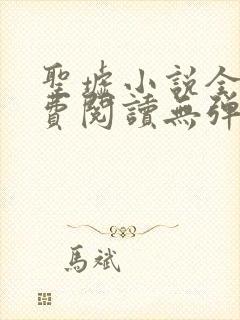 聖墟小说全
費閱讀無彈
馬斌